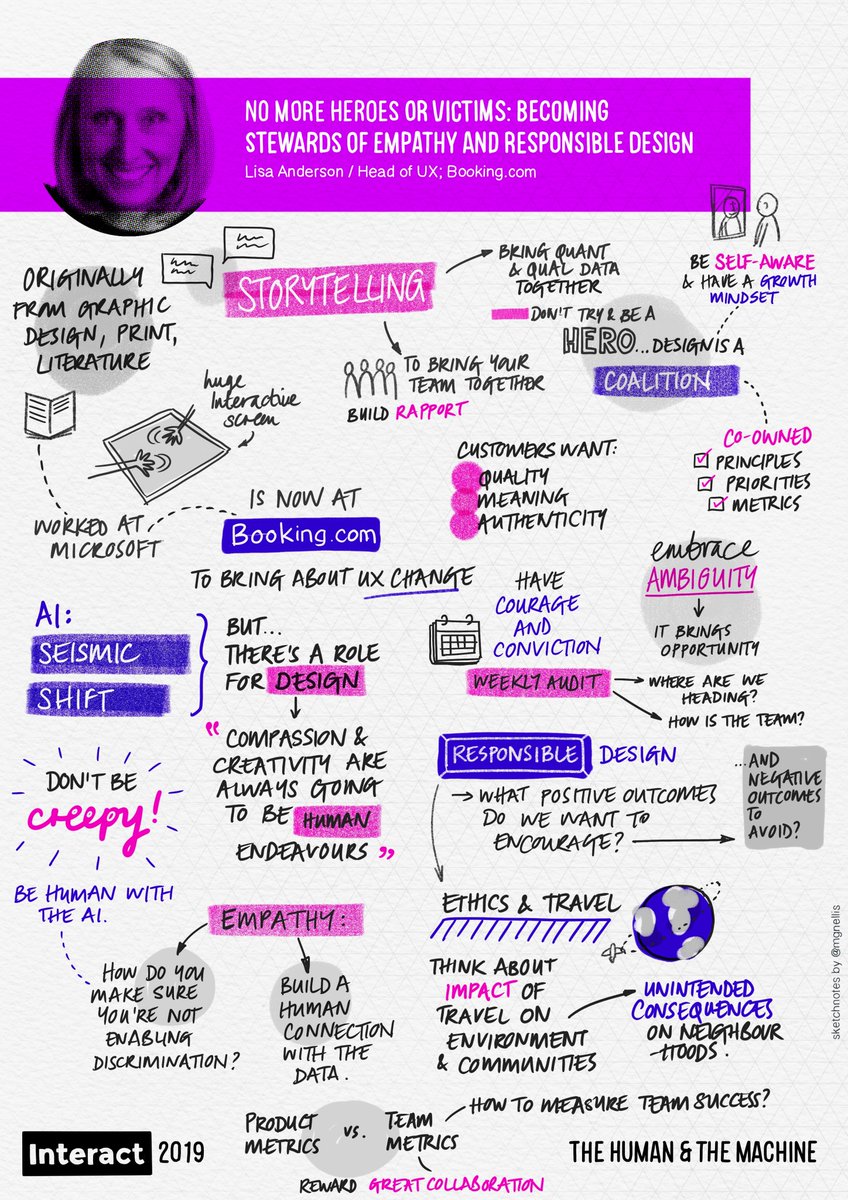 NO MORE HEROES OR VICTIMS: BECOMING
STEWARDS OF EMPATHY AND RESPONSIBLE DESIGN
Lisa Anderson / Head of UX; Booking.com
ORIGINALLY
FROM GRAPHIC
DESIGN, PRINT,
LITERATURE
huge
Interactive
screen
WORKED AT
MICROSOFT
IS NOW AT
Booking.com
TO BRING ABOUT UX CHANGE
STORYTELLING
BRING QUANT
& QUAL DATA
TOGETHER
TO BRING YOUR
TEAM TOGETHER
BUILD RAPPORT
DON'T TRY & BE A
HERO... DESIGN IS A
COALITION
BE SELF-AWARE
& HAVE A GROWTH
MINDSET
CO-OWNED
PRINCIPLES
PRIORITIES
METRICS
CUSTOMERS WANT:
QUALITY
MEANING
AUTHENTICITY
embrace
AMBIGUITY
IT BRINGS
OPPORTUNITY
HAVE
COURAGE
AND
CONVICTION
WEEKLY AUDIT
WHERE ARE WE
HEADING?
HOW IS THE TEAM?
AI:
SEISMIC
SHIFT
BUT...
THERE'S A ROLE
FOR DESIGN
"COMPASSION &
CREATIVITY ARE
ALWAYS GOING
TO BE HUMAN
ENDEAVOURS"
DON'T BE
creepy!
BE HUMAN WITH
THE AI.
RESPONSIBLE DESIGN
WHAT POSITIVE OUTCOMES
DO WE WANT TO
ENCOURAGE?
...AND
NEGATIVE
OUTCOMES
TO
AVOID?
EMPATHY:
HOW DO YOU
MAKE SURE
YOU'RE NOT
ENABLING
DISCRIMINATION?
BUILD A
HUMAN
CONNECTION
WITH THE
DATA.
ETHICS & TRAVEL
THINK ABOUT
IMPACT OF
TRAVEL ON
ENVIRONMENT
& COMMUNITIES
UNINTENDED
CONSEQUENCES
ON NEIGHBOUR
-HOODS.
PRODUCT
METRICS
VS.
TEAM
METRICS
HOW TO MEASURE TEAM SUCCESS?
REWARD GREAT COLLABORATION
Interact 2019
THE HUMAN & THE MACHINE
sketchnotes by @mgnellis